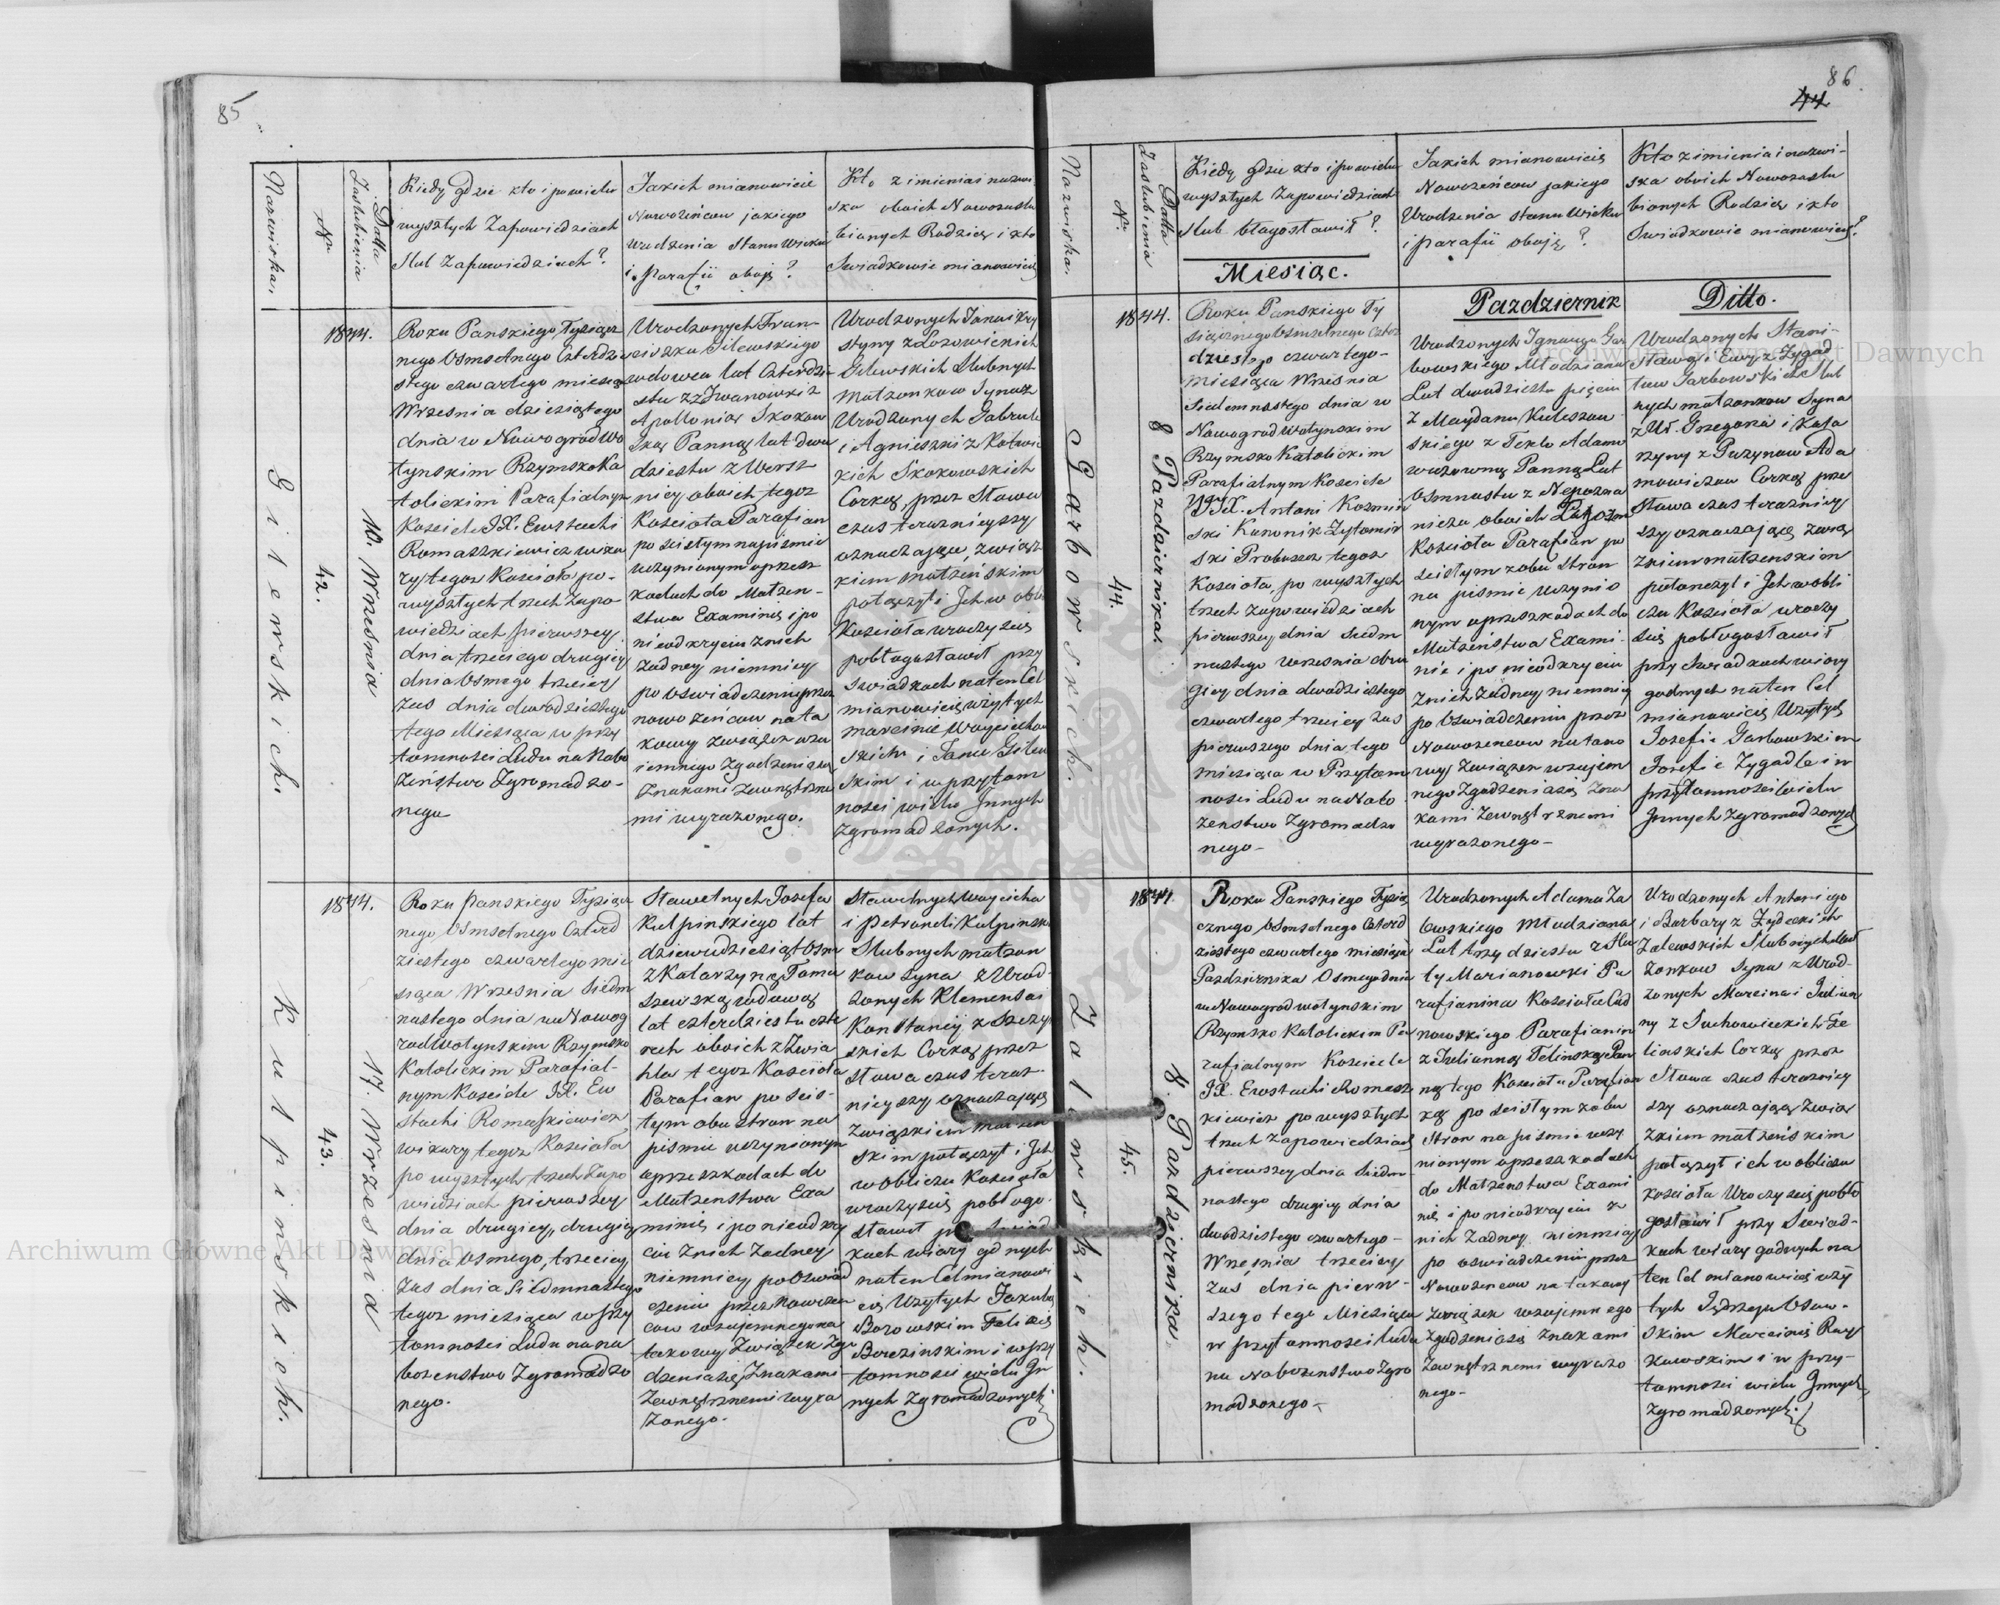 85
Nazwiska
Nr
Datta
Zaslubienia
Kiedy gdzie kto i po wielu
wyszłych Zapowiedziach
Slub Zapowiedziach?
Jakich mianowicie
Nowożeńcow jakiego
Urodzenia Stanu Wieku
i Parafii oboję?
Kto z imienia i nazwi
ska oboich Nowozaslu
bionych Rodzicy i kto
Swiadkowie mianowicie
Gilewskich
42.
10. Września
1844.
Roku Panskiego Tysiącz
nego Osmsetnego Czterdzie
stego czwartego miesiąca
Wrzesnia dziesiątego
dnia w Nowogradwo
łynskim Rzymsko Ka
tolickim Parafialnym
Kosciele JX. Ewstachi
Romaszkiewicz wika
ry tegoz Kościoła po-
wyszłych trzech Zapo
wiedziach pierwszey
dnia trzeciego drugiey
dnia Osmego trzeciey
zas dnia dwudziestego
tego Miesiąca w przy
tomności Ludu na Nabo
żeństwo Zgromadzo-
nego
Urodzonych Fran
ciszka Gilewskiego
wdowca lat Czterdzie
stu z Iwanowki z
Apollonią Skokow
ską Panną lat dwu
dziestu z Wersz
nicy oboich tegoz
Kościoła Parafian
po scisłym na piśmie
uczynionym o przesz
kodach do Małżen-
stwa Examinie i po
nieodkryciu znich
żadney niemniey
po oswiadczeniu przez
nowożeńcow na ta
kowy związek wza
iemnego Zgodzenia się
Znakami zewnętrzne
mi wyrażonego.
Urodzonych Jana i Kry
styny z Łozowickich
Gilewskich Slubnych
Małżonkow Synaz
Urodzonych Gabriela
i Agnieszki z Kotwic
kich Skokowskich
Corką, przez Słowa
czas teraznieyszy
oznaczające, związ
kiem małżeńskim
połączył i Ich w obli
Kościoła uroczyscie
pobłogosławił przy
Swiadkach na ten Cel
mianowicie użytych
Marcinie Woyciechow
skim i Janie Gilew
skim i w przytom
ności wielu Innych
Zgromadzonych.
Kulpinskich.
43.
17. Września
1844.
Roku Panskiego Tysiącz
nego Osmsetnego Czterd
ziestego czwartego mie
siąca Wrzesnia Siedm
nastego dnia w Nowog
rodwołynskim Rzymsko
Katolickim Parafial-
nym Kosciele JX. Ew
stachi Romaszkiewicz
wikary tegoz Kościoła
po wyszłych trzech Zapo
wiedziach pierwszey
dnia drugiey, drugiey
dnia osmego, trzeciey
zas dnia Siedmnastego
tegoz miesiąca w przy
tomności Ludu na na
bożenstwo Zgromadzo
nego.
Sławetnych Jozefa
Kulpinskiego lat
dziewiędziesiąt Osm
z Katarzyną Toma
szewską wdową
lat czterdziestu czte
rech oboich z Zwia
hla tegoz Kościoła
Parafian po scis-
łym obu stron na
piśmie uczynionym
o przeszkodach do
Małżenstwa Exa
minie i po nieodkry
ciu Znich Zadney
niemniey po Oswiad
czeniu przez Nowożen
cow wzajemnego na
takowy Związek Zgo
dzenia się Znakami
Zewnętrznemi wyra
żonego.
Sławetnych Woyciecha
i Petroneli Kulpinskich
Slubnych małżon
kow Syna z Urod-
zonych Klemensa i
Konstancij z Szczy
skich Corką przez
Słowa czas teraz-
nieyszy oznaczające
Związkiem małżen
skim połączył i Ich
w Obliczu Kościoła
uroczyscie pobłogo-
sławił przy Swiad
kach wiary godnych
na ten Cel mianowi
cie Użytych Jakubie
Borowskim Felixie
Brezinskim i w przy
tomności wielu In
nych Zgromadzonych.
86
44
Nazwiska.
Nr.
Datta
Zaslubienia
Kiedy gdzie kto i po wielu
wyszłych Zapowiedziach
Slub błogosławił?
Jakich mianowicie
Nowożeńcow jakiego
Urodzenia Stanu Wieku
i parafii oboję?
Kto z imienia i nazwi-
ska oboich Nowozaslu
bionych Rodzicy i kto
Swiadkowie mianowicie?
Miesiąc.
Pazdziernik
Ditto.
Garbowskich.
44.
8 Pazdziernika.
1844.
Roku Panskiego Ty
siącznego Osmsetnego Czter
dziestego czwartego-
miesiąca Wrzesnia
Siedemnastego dnia w
Nowogradwołynskim
Rzymsko Katolickim
Parafialnym Kosciele
JX. Antoni Kozmin
ski Kanonik Zytomir
ski Proboszcz tegoz
Kościoła, po wyszłych
trzech zapowiedziach
pierwszey dnia siedm
nastego wrzesnia dru
giey dnia dwudziestego
czwartego trzeciey zas
pierwszego dnia, tego
miesiąca w Przytom
ności Ludu na Nabo
żenstwo Zgromadzo
nego-
Urodzonych Ignacego Gar
bowskiego Młodziana
Lat dwudziestu pięciu
z Maydanu Kuleszow
skiego z Teklą Adamo
wiczowną Panną Lat
Osmnastu z Nepozna
nicza oboich tegoz
Kościoła Parafian po
scisłym z obu Stron
na piśmie uczynio
nym o przeszkodach do
Małżeństwa Exami-
nie i po nieodkryciu
Znich żadney niemniey
po Oswiadczeniu przez
Nowożencow na tako
wy Związek wzajem
nego Zgodzenia się Zna
kami Zewnętrznemi
wyrażonego-
Urodzonych Stani-
sława i Ewy z Zygad
łow Garbowskich Slub
nych małżonkow Syna
z Ur. Grzegorza i Kata
rzyny z Puzynow Ada
mowiczow Corką prze
słowa czas terazniey
szy oznaczające zwią
zkiem małżenskim
połączył i Ich w obli
czu Kościoła uroczy
scie pobłogosławił
przy Swiadkach wiary
godnych na ten Cel
mianowicie Użytych
Jozefie Garbowskim
Jozefie Zygadle i w
przytomności wielu
Innych Zgromadzonych
Zalewskich.
45.
8. Pazdziernika
1844.
Roku Panskiego Tysią
cznego Osmsetnego Czterd
ziestego czwartego miesiąca
Pazdziernika Osmego dnia
w Nowogradwołynskim
Rzymsko Katolickim Pa
rafialnym Kosciele
JX. Ewstachi Romasz
kiewicz po wyszłych
trzech Zapowiedziach
pierwszey dnia Siedm
nastego drugiey dnia
dwudziestego czwartego-
Wrzesnia trzeciey
zaś dnia pierw-
szego tego Miesiąca
w przytomności ludu
na Nabozenstwo Zgro
madzonego-
Urodzonych Adama Za
lewskiego Młodziana
Lat trzydziestu z Hu
ty Marianowki Pa
rafianina Kościoła Cud
nowskiego Parafianin
z Julianną Telinską Pan
ną tego Kościoła Parafian
ką po scisłym z obu
Stron na piśmie uczy
nionym o przeszkodach
do Małżenstwa Exami
nie i po nieodkryciu z
nich Zadney niemniey
po oswiadczeniu przez
Nowożencow na takowy
Związek wzajemnego
Zgodzenia się Znakami
Zewnętrznemi wyrażo
nego-
Urodzonych Antoniego
i Barbary z Żydeckich
Zalewskich Slubnych Mał
żonkow Syna z Urod-
zonych Marcina i Julian
ny z Suchowieckich Te
linskich Corką przez
Słowa czas terazniey
szy oznaczające Związ
zkiem małżeńskim
połączył ich w obliczu
Kościoła Uroczyscie pobło
gosławił przy Swiad-
kach wiary godnych na
ten Cel mianowicie uży
tych Jędrzeju Osow-
skim Marcinie Ruy
kowskim i w przy-
tomności wielu Innych
Zgromadzonych.
Archiwum Główne Akt Dawnych
Archiwum Główne Akt Dawnych